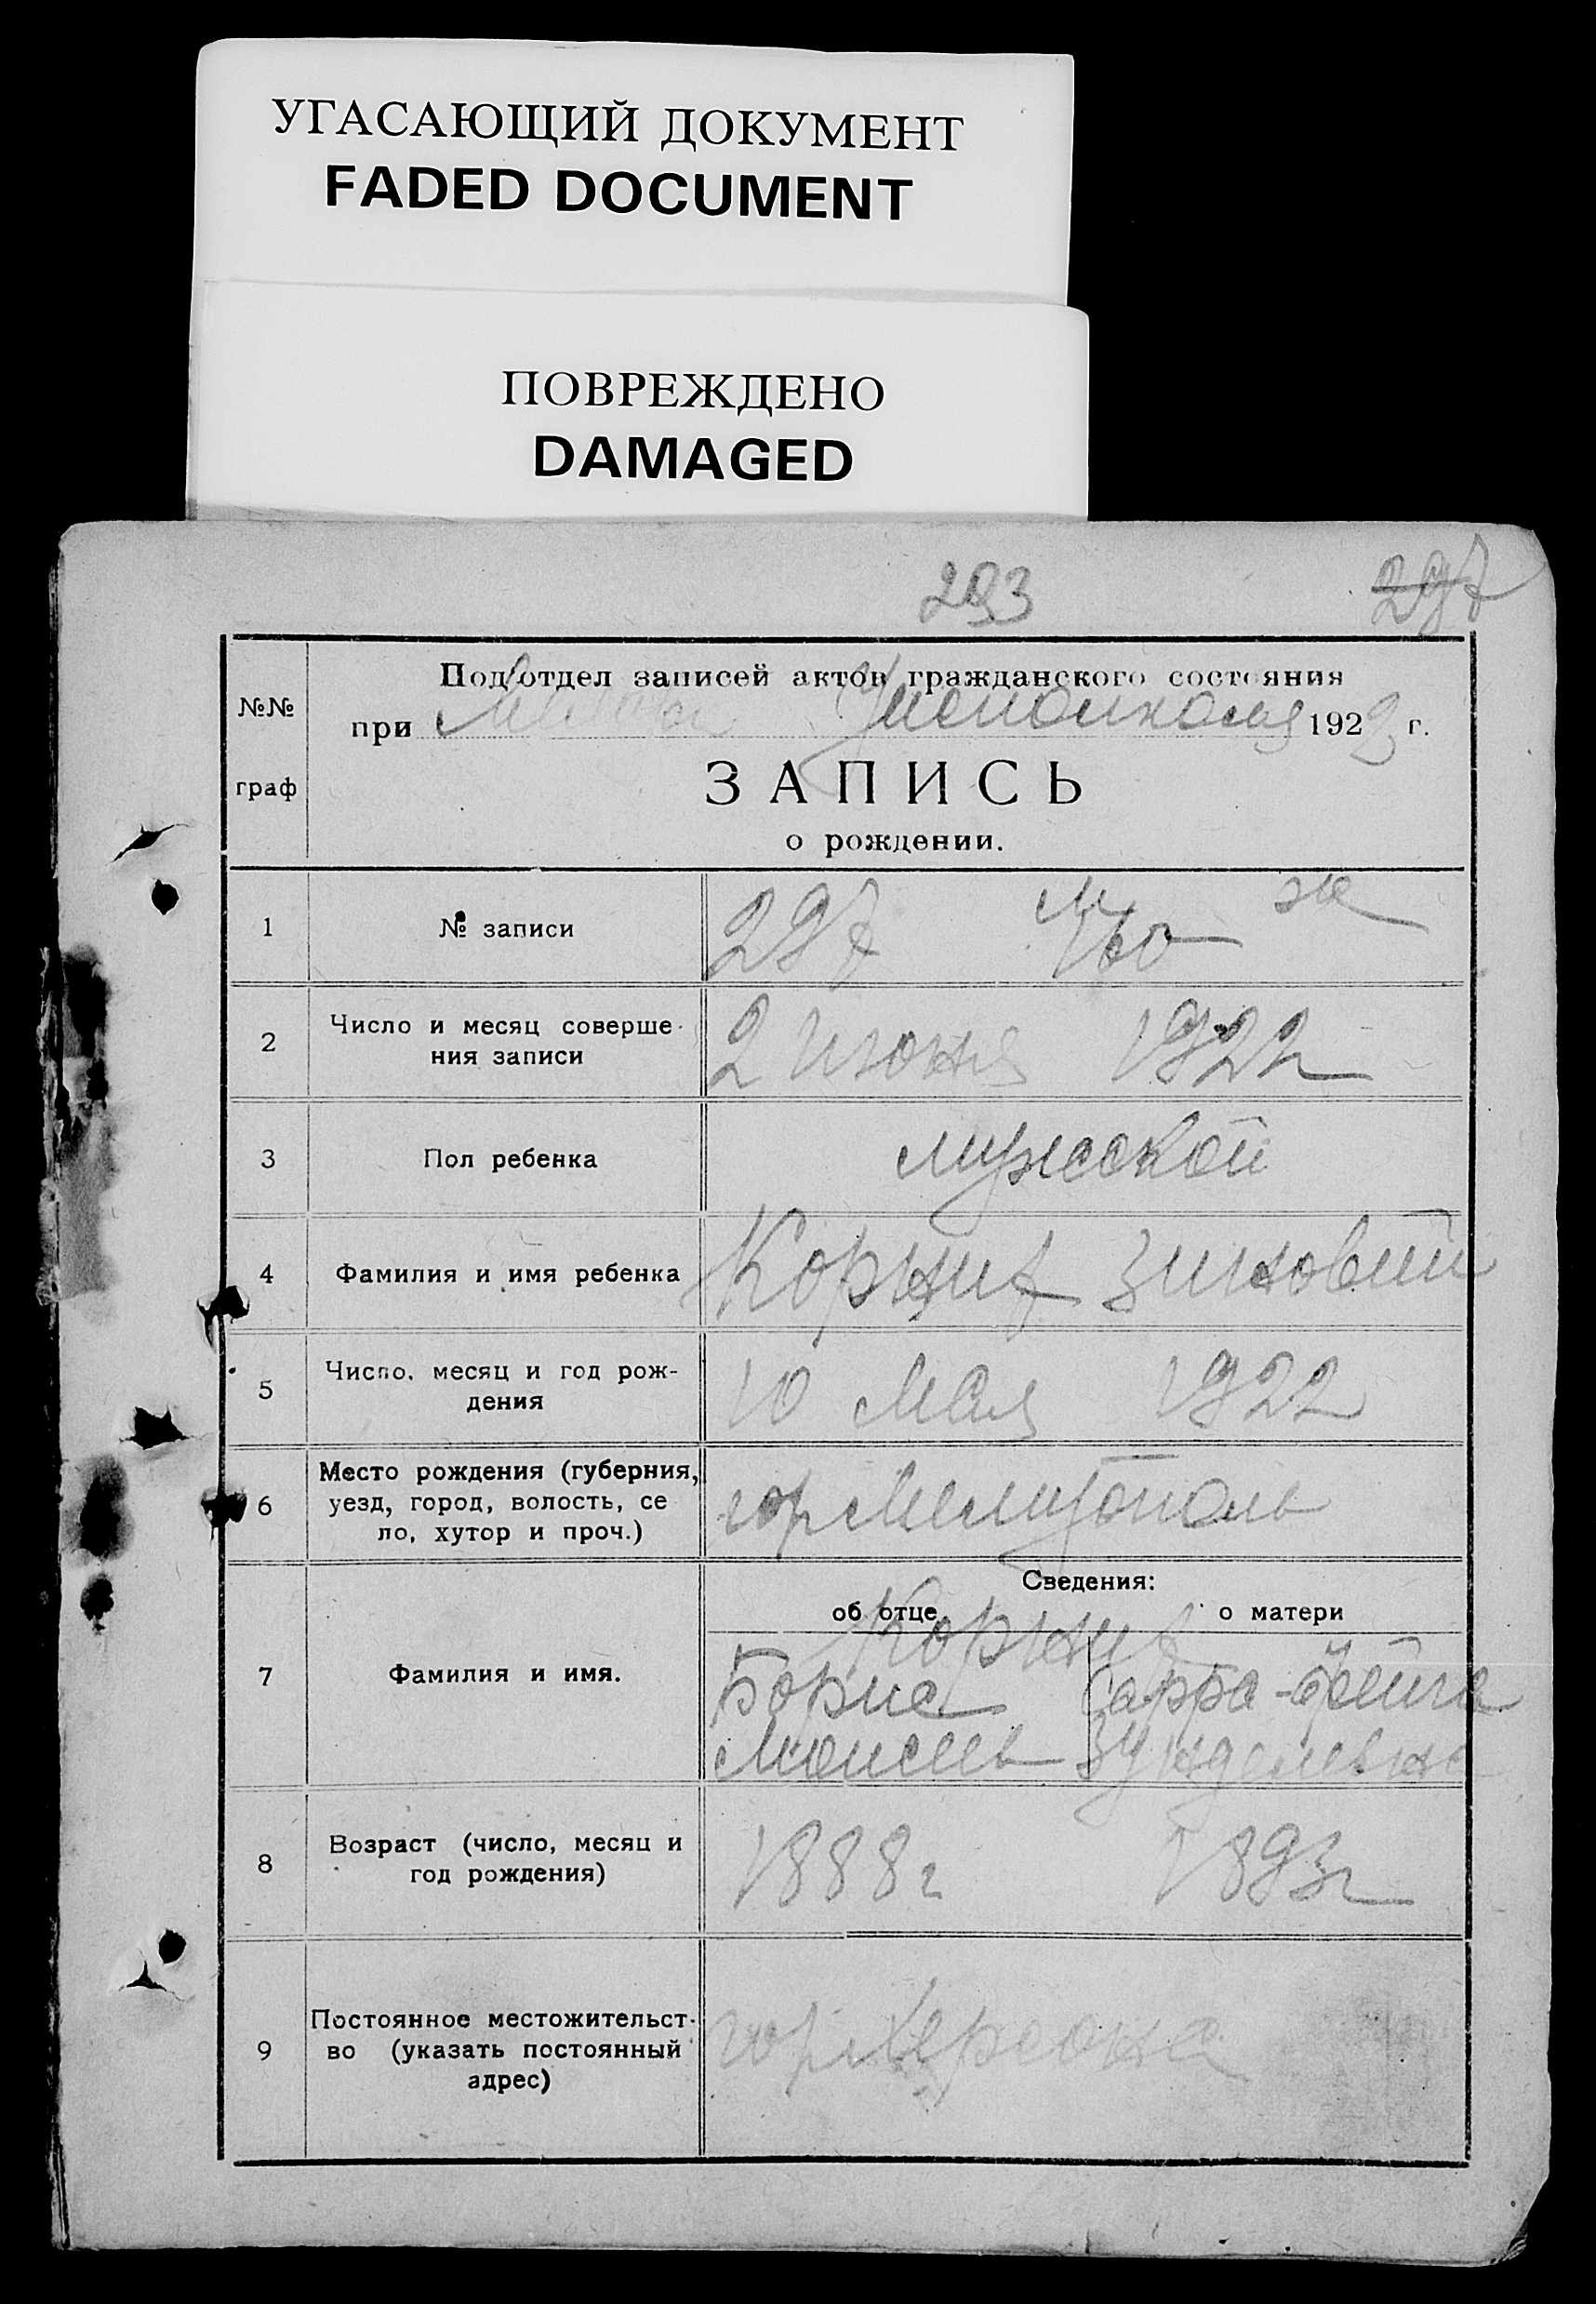 УГАСАЮЩИЙ ДОКУМЕНТ
FADED DOCUMENT
ПОВРЕЖДЕНО
DAMAGED
293 297
№№
граф
Подотдел записей актов гражданского состояния
при Исполкома 1922 г.
ЗАПИСЬ
о рождении.
1 № записи 297 м ж
160
2 Число и месяц соверше-
ния записи 2 июня 1922
3 Пол ребенка мужской
4 Фамилия и имя ребенка Зиновий
5 Число, месяц и год рож-
дения 10 Мая 1922
6 Место рождения (губерния,
уезд, город, волость, се
ло, хутор и проч.) гор Мелитополь
Сведения:
об отце о матери
7 Фамилия и имя.
Борис Сарра-Фейга
Моисеев Зунделевна
8 Возраст (число, месяц и
год рождения) 1888 г 1893 г
9 Постоянное местожительст-
во (указать постоянный
адрес) гор Херсона